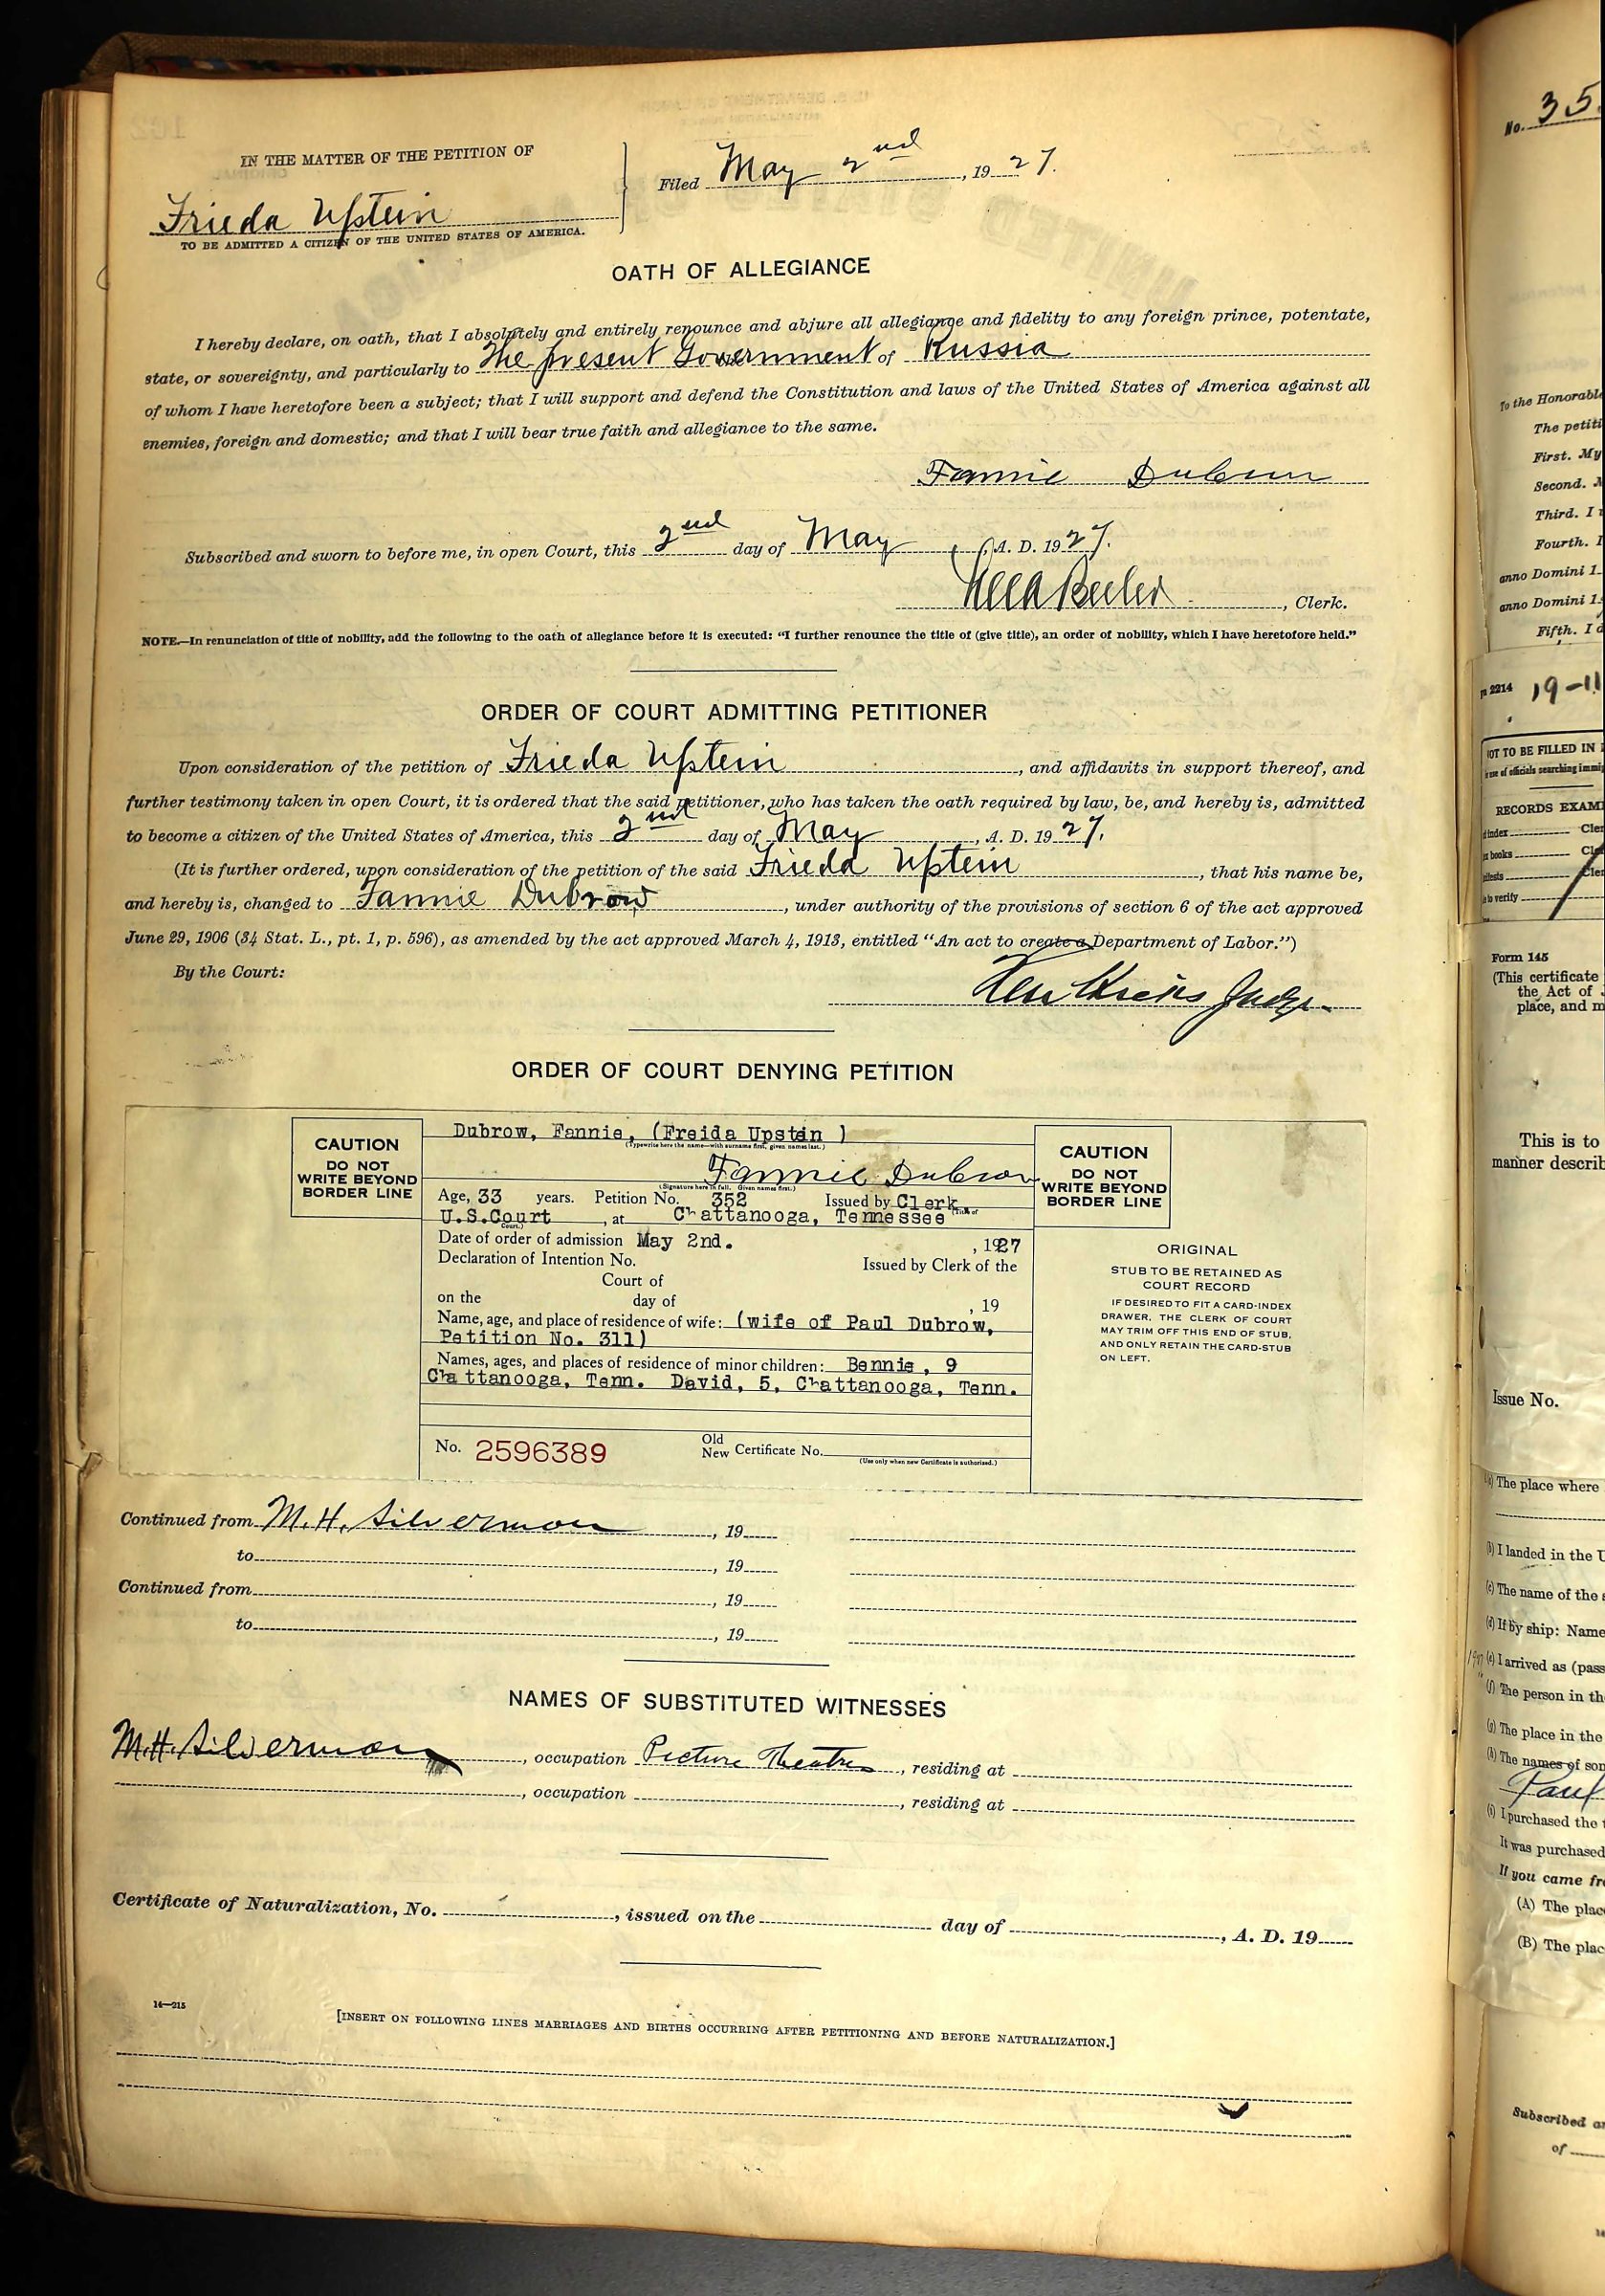 IN THE MATTER OF THE PETITION OF
Frieda Upstein
TO BE ADMITTED A CITIZEN OF THE UNITED STATES OF AMERICA.
Filed May 2nd, 1927.
OATH OF ALLEGIANCE
I hereby declare, on oath, that I absolutely and entirely renounce and abjure all allegiance and fidelity to any foreign prince, potentate,
state, or sovereignty, and particularly to The present Government of Russia
of whom I have heretofore been a subject; that I will support and defend the Constitution and laws of the United States of America against all
enemies, foreign and domestic; and that I will bear true faith and allegiance to the same.
Fannie Dubrow
Subscribed and sworn to before me, in open Court, this 2nd day of May, A. D. 1927.
, Clerk.
NOTE.—In renunciation of title of nobility, add the following to the oath of allegiance before it is executed: “I further renounce the title of (give title), an order of nobility, which I have heretofore held.”
ORDER OF COURT ADMITTING PETITIONER
Upon consideration of the petition of Frieda Upstein, and affidavits in support thereof, and
further testimony taken in open Court, it is ordered that the said petitioner, who has taken the oath required by law, be, and hereby is, admitted
to become a citizen of the United States of America, this 2nd day of May, A. D. 1927.
(It is further ordered, upon consideration of the petition of the said Frieda Upstein, that his name be,
and hereby is, changed to Fannie Dubrow, under authority of the provisions of section 6 of the act approved
June 29, 1906 (34 Stat. L., pt. 1, p. 596), as amended by the act approved March 4, 1913, entitled “An act to create a Department of Labor.”)
By the Court:
Judge.
ORDER OF COURT DENYING PETITION
CAUTION
DO NOT
WRITE BEYOND
BORDER LINE
Dubrow, Fannie, (Freida Upstein )
(Typewrite here the name—with surname first, given names last.)
Fannie Dubrow
(Signature here in full. Given names first.)
Age, 33 years. Petition No. 352 Issued by Clerk
U.S.Court, at Chattanooga, Tennessee
(Court.)
Date of order of admission May 2nd. , 1927
Declaration of Intention No. Issued by Clerk of the
Court of
on the day of , 19
Name, age, and place of residence of wife: (wife of Paul Dubrow,
Petition No. 311)
Names, ages, and places of residence of minor children: Bennie, 9
Chattanooga, Tenn. David, 5, Chattanooga, Tenn.
No. 2596389
Old
New Certificate No.
(Use only when new Certificate is authorized.)
CAUTION
DO NOT
WRITE BEYOND
BORDER LINE
ORIGINAL
STUB TO BE RETAINED AS
COURT RECORD
IF DESIRED TO FIT A CARD-INDEX
DRAWER, THE CLERK OF COURT
MAY TRIM OFF THIS END OF STUB,
AND ONLY RETAIN THE CARD-STUB
ON LEFT.
Continued from M. H. Silverman, 19
to, 19
Continued from, 19
to, 19
NAMES OF SUBSTITUTED WITNESSES
M. H. Silverman, occupation Picture Theatre, residing at
, occupation , residing at
Certificate of Naturalization, No. , issued on the day of , A. D. 19
14—215
[INSERT ON FOLLOWING LINES MARRIAGES AND BIRTHS OCCURRING AFTER PETITIONING AND BEFORE NATURALIZATION.]
No. 35
To the Honorable
The petiti
First. My
Second. M
Third. I
Fourth. I
anno Domini 1
anno Domini 1
Fifth. I d
2214 19-11
NOT TO BE FILLED IN
RECORDS EXAMI
index Cler
books
to verify
Form 145
(This certificate
the Act of
place, and m
This is to
manner describ
Issue No.
The place where
(b) I landed in the U
(c) The name of the s
(d) If by ship: Name
(e) I arrived as (pass
(f) The person in th
(g) The place in the
(h) The names of son
Paul
(i) I purchased the t
It was purchased
If you came fr
(A) The plac
(B) The plac
Subscribed an
of